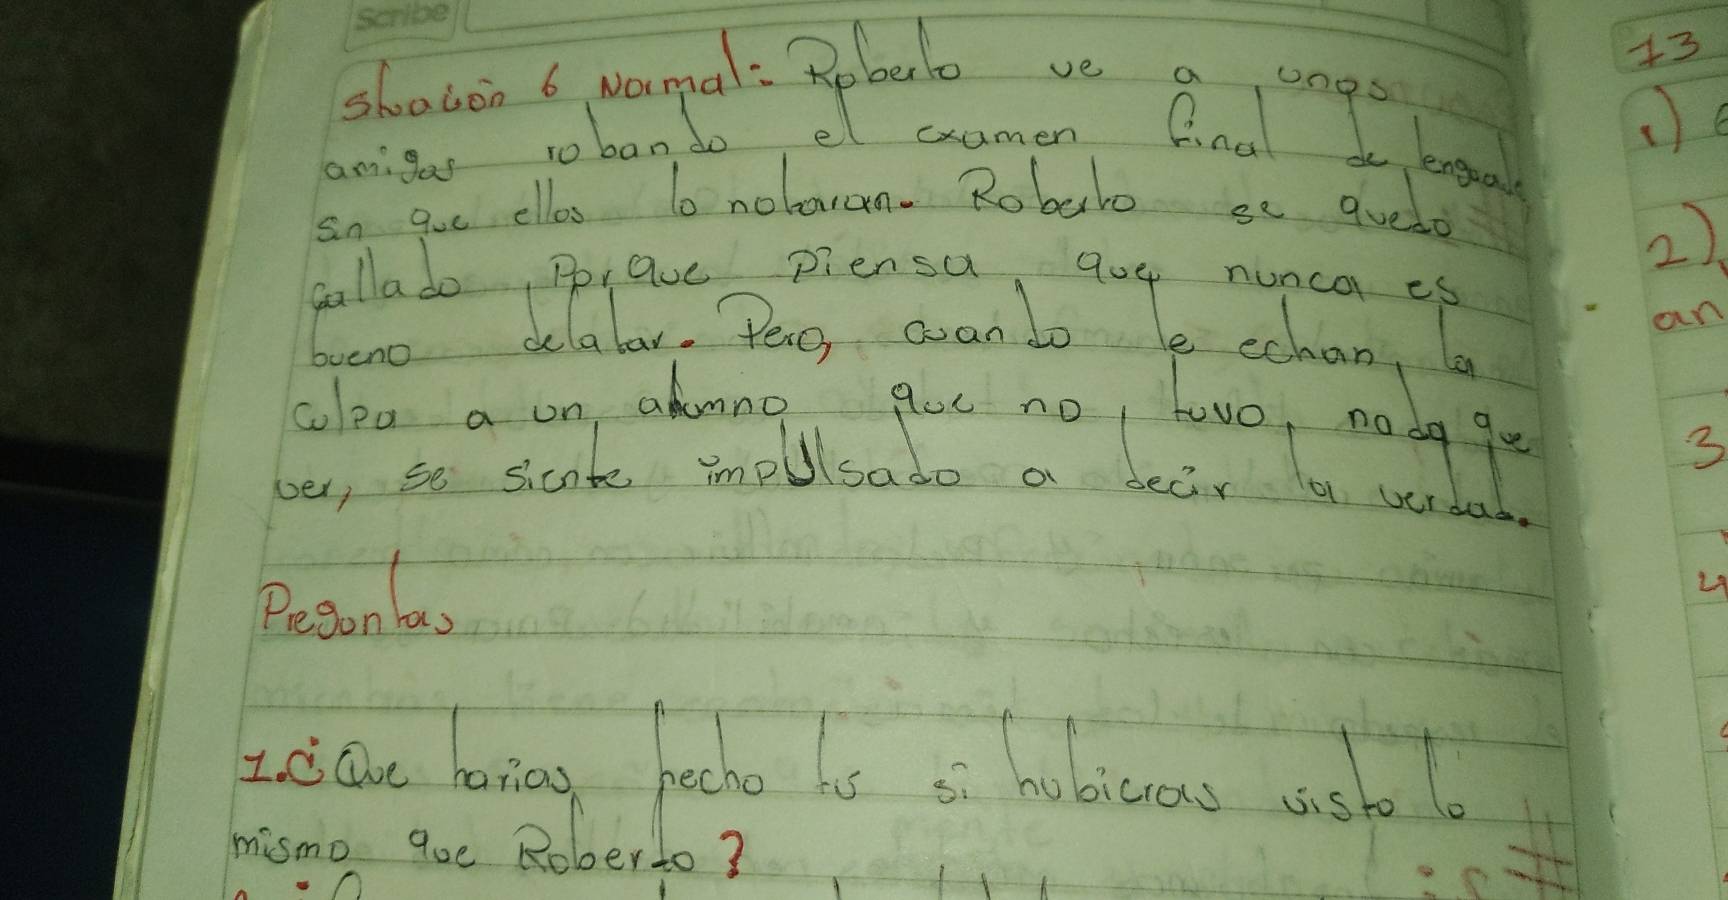 Scribe
Situación 6 Normal: Roberto ve a unos
amigos robando el examen final de lenguaje
sin que ellos lo notaran. Roberto se quedo
callado, Porque Piensa que nunca es
bueno delatar. Pero, cuando le echan la
culpa a un alumno que no tuvo nada que
ver, se siente impulsado a decir la verdad.
Preguntas
1.¿Que harias hecho tu si hubieras visto lo
mismo que Roberto?
13
1)
2)
an
3
4